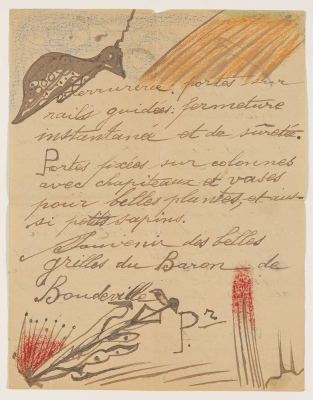 Serrurerie, portes sur
rails guidées: fermeture
instantanée et de sûreté.
Portes fixées sur colonnes
avec chapiteaux et vases
pour belles plantes, et aus-
si petits sapins.
Souvenir des belles
grilles du Baron de
Boudeville
Pr